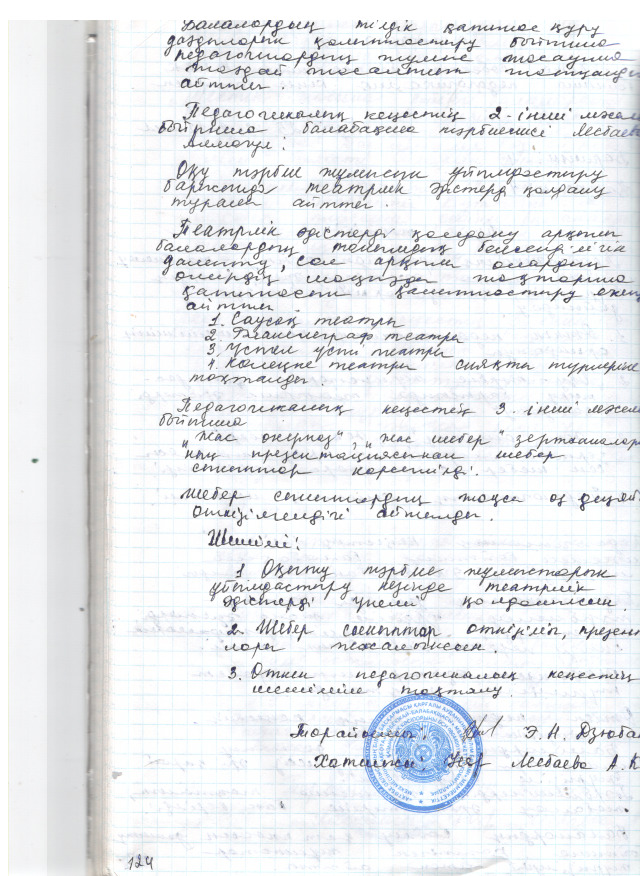 Балалордың тілдік қатынас құру
дағдыларын қалыптастыру бойынша
педагогтардың жұмыс жасауына
айтты.
Педагогикалық кеңестің 2-інші мәсел
бойынша балабақша тәрбиешісі Лесбаева
Оқу тәрбие жұмысын ұйымдастыру
барысында театрлік әдістерді қолдану
туралы айтты.
Театрлік әдістерді қолдану арқылы
балалордың танымдық белсенділігін
дамыту, сол арқылы олардың
өмірдің маңызды
қатынасын қалыптастыру екен
айтты
1. Саусақ театры
2. Фланелеграф театры
3. Үстел үсті театры
4. Көлеңке театры сияқты түрлеріне
тоқталды.
Педагогикалық кеңестің 3-інші мәсел
бойынша
„Жас оқымыс", „Жас шебер" зертханалар
ның презентациясынан шебер
сыныптар көрсетілді.
Шебер сыныптардың жақсы өз деңгей
өткізілгендігі айтылды.
Шешімі:
1 Оқыту тәрбие жұмыстарын
ұйымдастыру кезінде театрлік
әдістерді үнемі қолданылсын.
2. Шебер сыныптар өткізіліп, презен
3. Өткен педагогикалық кеңестің
шешіміне тоқталу.
Төрайымы: Э. Н. Дзюба
Хатшысы: Лесбаева А. К
124